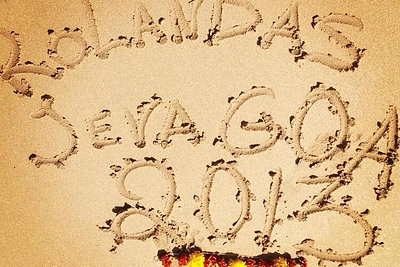 ROLANDAS
JEVA GOA
2013